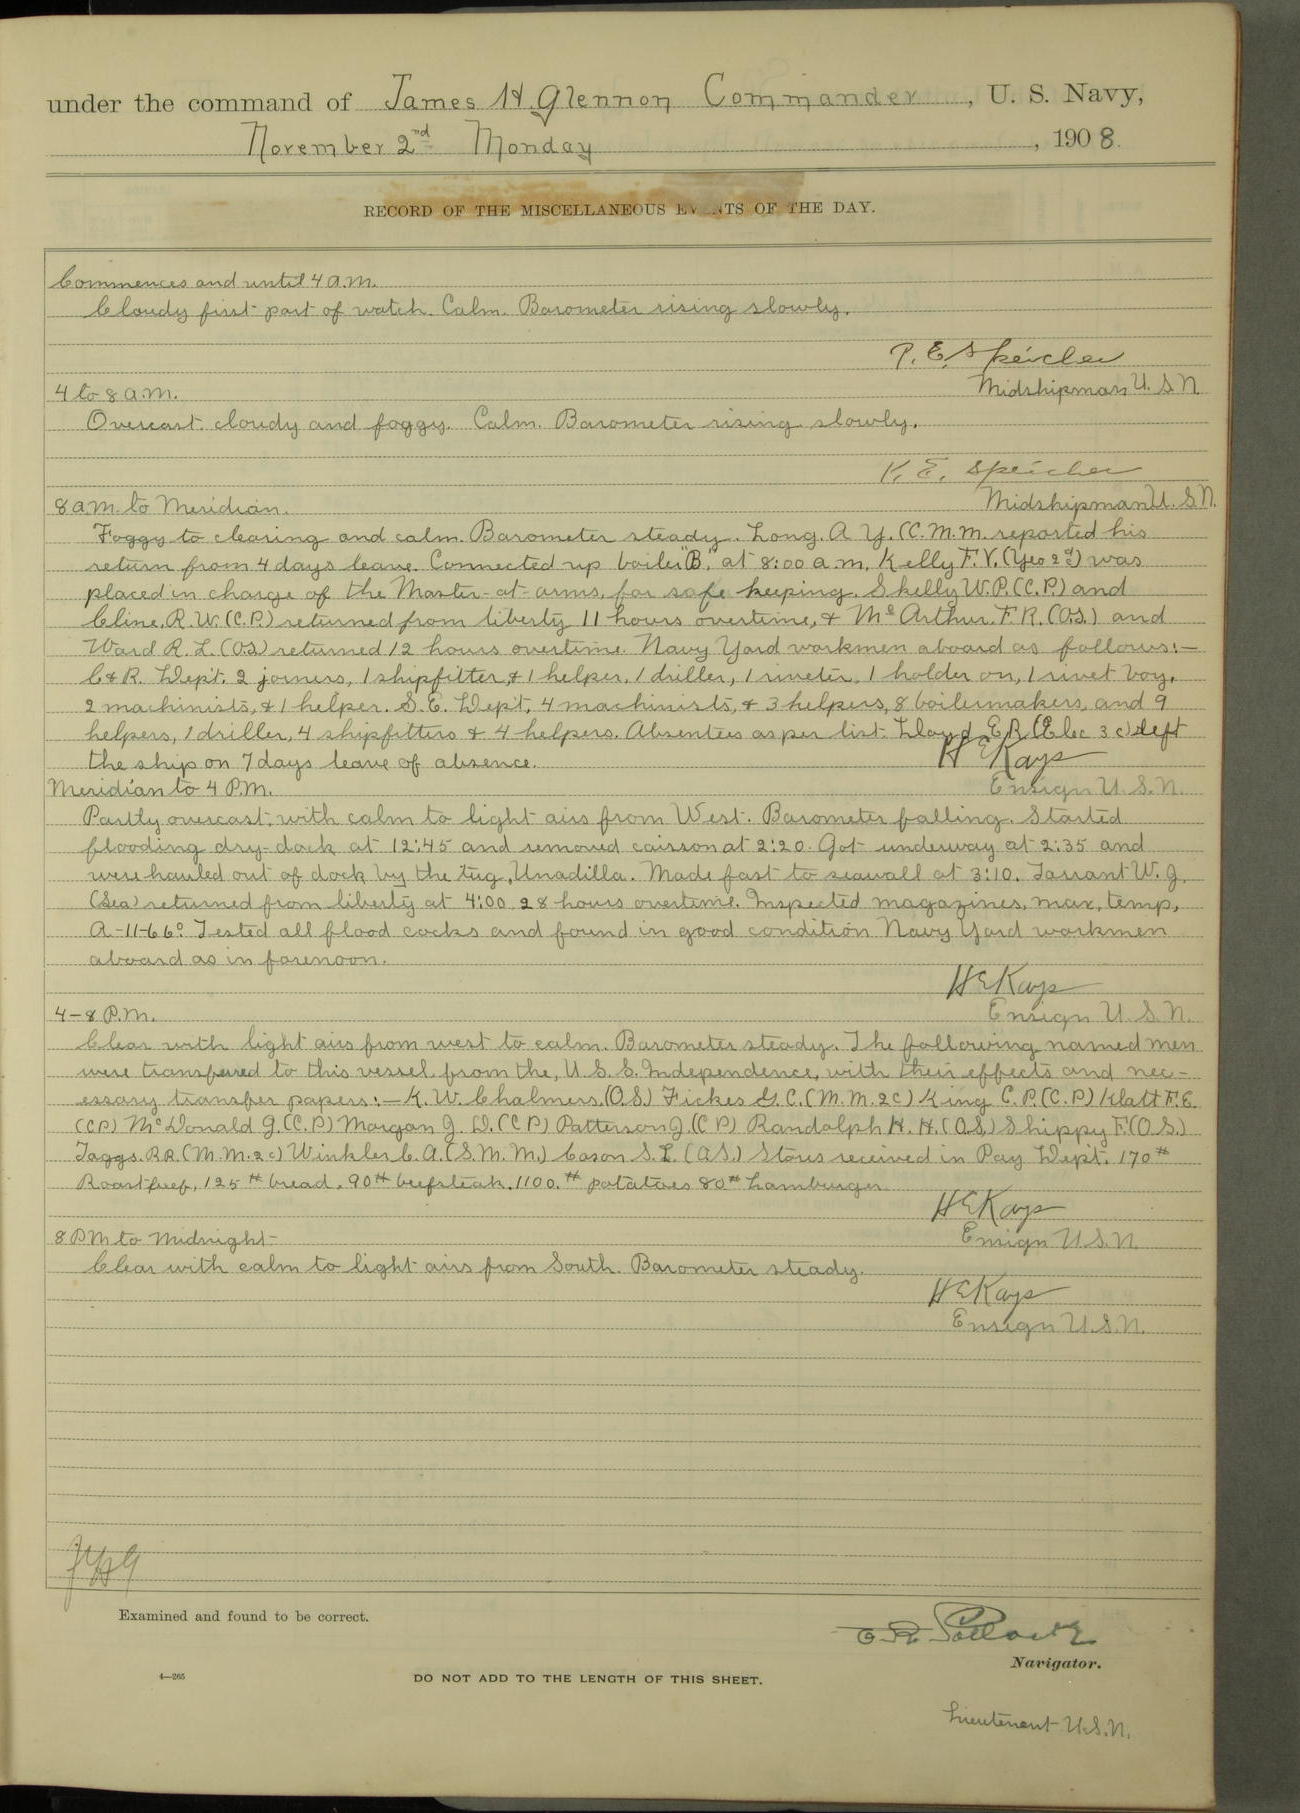 under the command of James H. Glennon Commander, U. S. Navy,
November 2nd Monday, 1908.
RECORD OF THE MISCELLANEOUS EVENTS OF THE DAY.
Commences and until 4 a.m.
Cloudy first part of watch. Calm. Barometer rising slowly.
E. Speicher
4 to 8 a.m.
Midshipman U.S.N.
Overcast. cloudy and foggy. Calm. Barometer rising slowly.
E. Speicher
8 a.m. to Meridian.
Midshipman U.S.N.
Foggy to clearing and calm. Barometer steady. Long. A Y. (C.M.m. reported his
return from 4 days leave. Connected up boiler "B", at 8:00 a.m. Kelly F.V. (Yeo 2d) was
placed in charge of the Master-at-arms, for safe keeping. Skelly W.P. (C.P.) and
Cline, R.W. (C.P.) returned from liberty 11 hours overtime, & McArthur. F.R. (O.S.) and
Ward R.L. (O.S.) returned 12 hours overtime. Navy Yard workmen aboard as follows:—
C & R. Dept. 2 joiners, 1 shipfitter, & 1 helper, 1 driller, 1 riveter, 1 holder on, 1 rivet boy,
2 machinists, & 1 helper. S.E. Dept, 4 machinists, & 3 helpers, 8 boilermakers, and 9
helpers, 1 driller, 4 shipfitters & 4 helpers. Absentees as per list. Lloyd E.R. (Elec 3c) left
the ship on 7 days leave of absence.
H E Kays
Meridian to 4 P.M.
Ensign U.S.N.
Partly overcast, with calm to light airs from West. Barometer falling. Started
flooding dry-dock at 12:45 and removed caisson at 2:20. Got underway at 2:35 and
were hauled out of dock by the tug, Unadilla. Made fast to seawall at 3:10. Tarrant W.J.
(Sea) returned from liberty at 4:00 28 hours overtime. Inspected magazines, max, temp,
A-11-66° Tested all flood cocks and found in good condition Navy Yard workmen
aboard as in forenoon.
H E Kays
4-8 P.m.
Ensign U.S.N.
Clear with light airs from west to calm. Barometer steady. The following named men
were transferred to this vessel from the, U.S.S. Independence, with their effects and nec-
essary transfer papers:— K.W. Chalmers, (O.S.) Fickes G.C. (M.M.2c) King C.P. (C.P.) Klatt F.E.
(C.P.) McDonald G. (C.P.) Morgan J.D. (C.P.) Patterson J. (C P.) Randolph H.H. (O.S.) Shippy F. (O.S.)
Taggs. R.R. (M.M.2c) Winkler C.A. (S.M.M.) Cason S.L. (A.S.) Stores received in Pay Dept. 170#
Roast beef, 125# bread, 90# beefsteak, 1100.# potatoes 80# hamburger
H E Kays
8 P M to Midnight-
Ensign U.S.N.
Clear with calm to light airs from South. Barometer steady.
H E Kays
Ensign U.S.N.
Examined and found to be correct.
Navigator.
4—265
DO NOT ADD TO THE LENGTH OF THIS SHEET.
Lieutenant U.S.N.